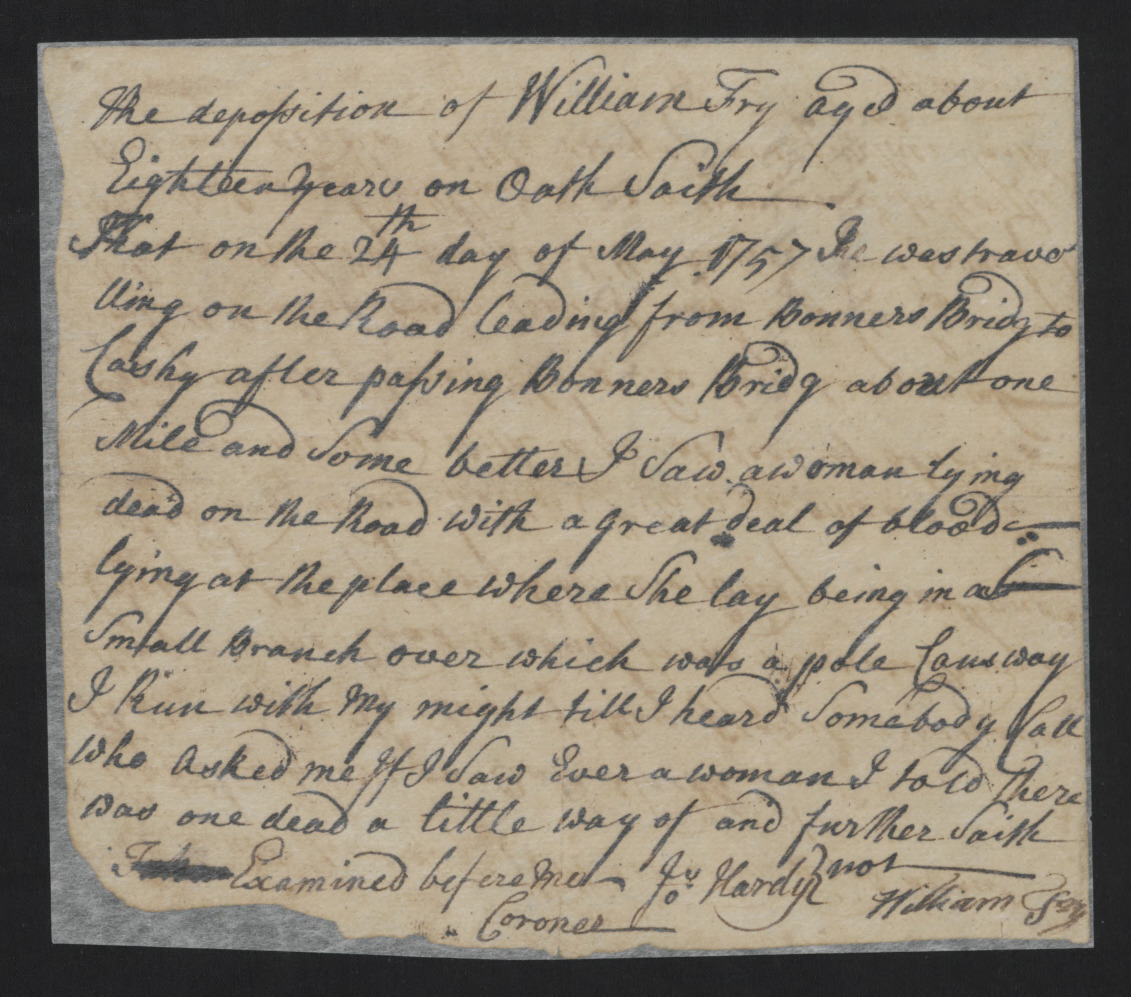 The deposition of William Fry aged about
Eighteen years on Oath Saith
That on the 24th day of May 1757 he was trave
lling on the Road leading from Bonners Bridg to
Cashy after passing Bonners Bridg about one
Mile and Some better I Saw a woman lying
dead on the Road with a great deal of blood
lying at the place where She lay being in a
Small Branch over which was a pole Causway
I Run with My might till I heard Somebody Call
who asked me If I Saw Ever a woman I told There
was one dead a little way of and further Saith
not
Examined before Me Jo Hardy
William Fry
Coroner